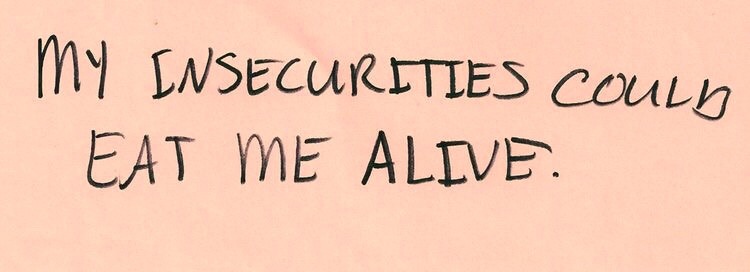 MY INSECURITIES COULD
EAT ME ALIVE.